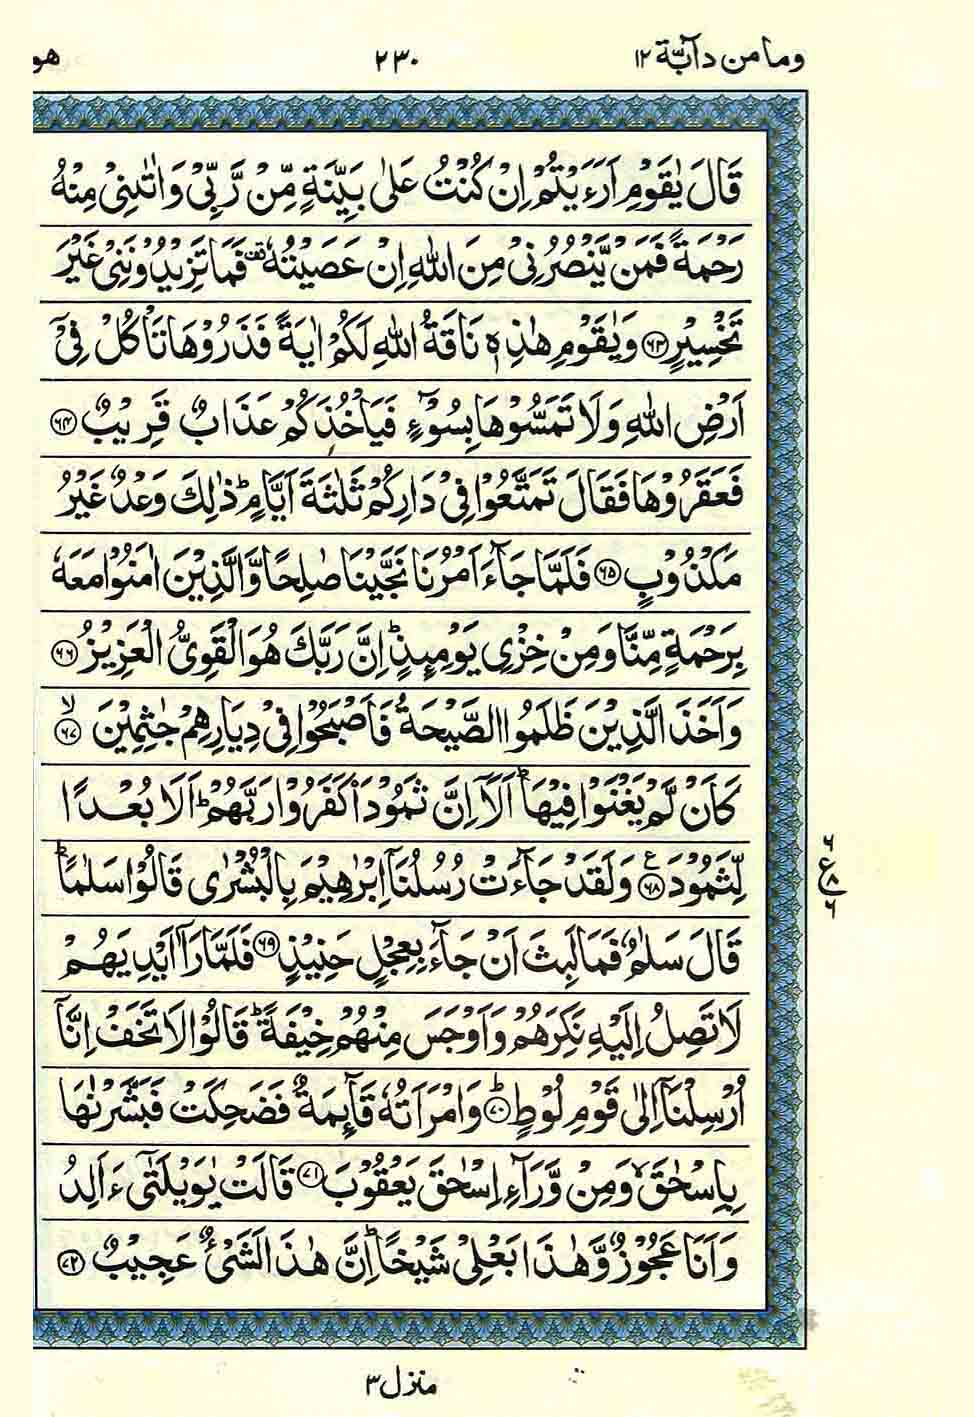 وما من دآبّة ١٢
٢٣٠
هو
قَالَ يٰقَوْمِ اَرَءَيْتُمْ اِنْ كُنْتُ عَلٰى بَيِّنَةٍ مِّنْ رَّبِّىْ وَاٰتٰىنِىْ مِنْهُ
رَحْمَةً فَمَنْ يَّنْصُرُنِىْ مِنَ اللّٰهِ اِنْ عَصَيْتُهٗ ۫ قف فَمَا تَزِيْدُوْنَنِىْ غَيْرَ
تَخْسِيْرٍ ﴿٦٣﴾ وَيٰقَوْمِ هٰذِهٖ نَاقَةُ اللّٰهِ لَكُمْ اٰيَةً فَذَرُوْهَا تَاْكُلْ فِىْٓ
اَرْضِ اللّٰهِ وَلَا تَمَسُّوْهَا بِسُوْٓءٍ فَيَاْخُذَكُمْ عَذَابٌ قَرِيْبٌ ﴿٦٤﴾
فَعَقَرُوْهَا فَقَالَ تَمَتَّعُوْا فِىْ دَارِكُمْ ثَلٰثَةَ اَيَّامٍ ؕ ذٰلِكَ وَعْدٌ غَيْرُ
مَكْذُوْبٍ ﴿٦٥﴾ فَلَمَّا جَآءَ اَمْرُنَا نَجَّيْنَا صٰلِحًا وَّالَّذِيْنَ اٰمَنُوْا مَعَهٗ
بِرَحْمَةٍ مِّنَّا وَمِنْ خِزْىِ يَوْمِئِذٍ ؕ اِنَّ رَبَّكَ هُوَ الْقَوِىُّ الْعَزِيْزُ ﴿٦٦﴾
وَاَخَذَ الَّذِيْنَ ظَلَمُوا الصَّيْحَةُ فَاَصْبَحُوْا فِىْ دِيَارِهِمْ جٰثِمِيْنَ ۙ ﴿٦٧﴾
كَاَنْ لَّمْ يَغْنَوْا فِيْهَا ؕ اَلَاۤ اِنَّ ثَمُوْدَا۟ كَفَرُوْا رَبَّهُمْ ؕ اَلَا بُعْدًا
لِّثَمُوْدَ ﴿٦٨﴾ ع وَلَقَدْ جَآءَتْ رُسُلُنَاۤ اِبْرٰهِيْمَ بِالْبُشْرٰى قَالُوْا سَلٰمًا ؕ
٦ ع ٨ ٦
قَالَ سَلٰمٌ فَمَا لَبِثَ اَنْ جَآءَ بِعِجْلٍ حَنِيْذٍ ﴿٦٩﴾ فَلَمَّا رَاٰۤ اَيْدِيَهُمْ
لَا تَصِلُ اِلَيْهِ نَكِرَهُمْ وَاَوْجَسَ مِنْهُمْ خِيْفَةً ؕ قَالُوْا لَا تَخَفْ اِنَّاۤ
اُرْسِلْنَاۤ اِلٰى قَوْمِ لُوْطٍ ؕ ﴿٧٠﴾ وَامْرَاَتُهٗ قَآئِمَةٌ فَضَحِكَتْ فَبَشَّرْنٰهَا
بِاِسْحٰقَ ۙ وَمِنْ وَّرَآءِ اِسْحٰقَ يَعْقُوْبَ ﴿٧١﴾ قَالَتْ يٰوَيْلَتٰٓى ءَاَلِدُ
وَاَنَا عَجُوْزٌ وَّهٰذَا بَعْلِىْ شَيْخًا ؕ اِنَّ هٰذَا لَشَىْءٌ عَجِيْبٌ ﴿٧٢﴾
منزل ٣